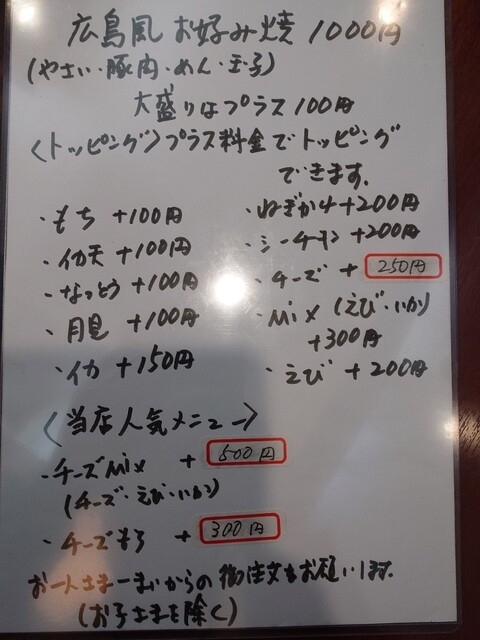 広島風お好み焼 1000円
(やさい・豚肉・めん・玉子)
大盛りはプラス100円
〈トッピング〉プラス料金でトッピング
できます。
・もち +100円
・イカ天 +100円
・なっとう +100円
・月見 +100円
・イカ +150円
・ねぎかけ+200円
・シーチキン +200円
・チーズ + 250円
・Mix (えび・いか)
+300円
・えび +200円
〈当店人気メニュー〉
・チーズMix + 500円
(チーズ・えび・いか)
・チーズもち + 300円
お一人さま一まいからの御注文をお願いします。
(お子さまを除く)